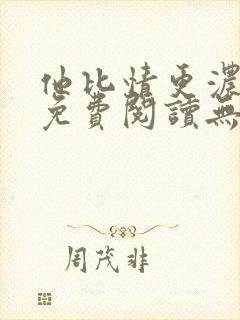 他比情更濃
免費閱讀無
周茂非